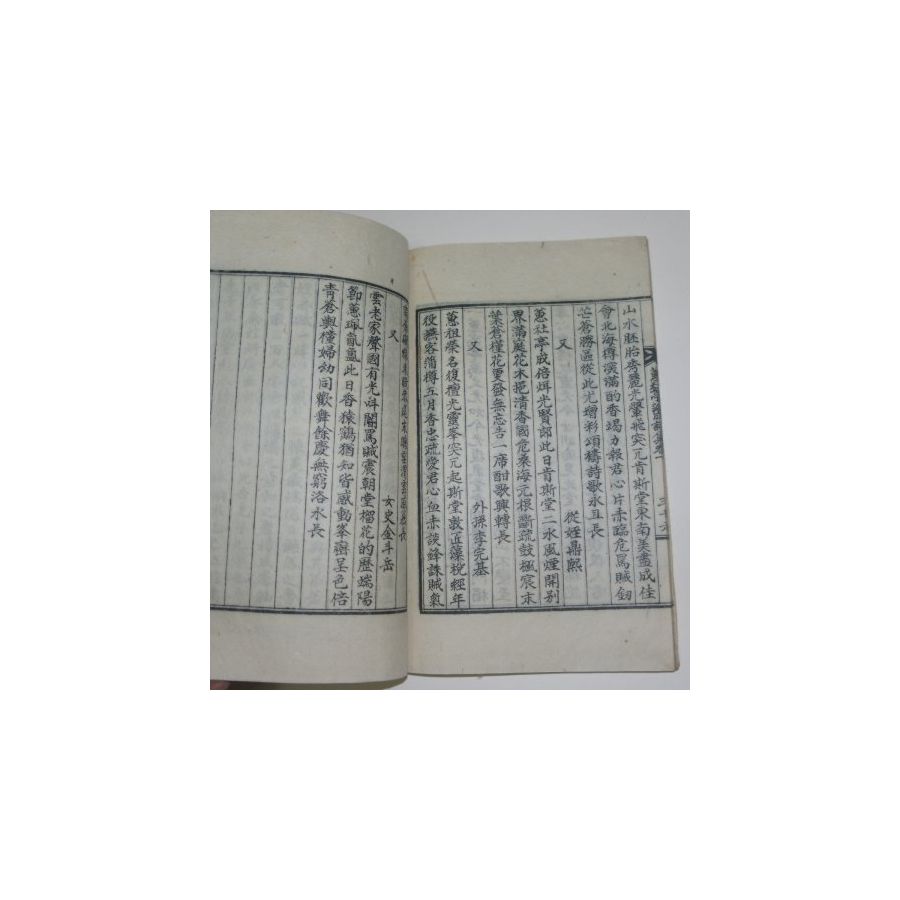 山水胚胎秀麗光翬飛突兀肯斯堂東南美盡成佳
會北海樽深滿酌香竭力報君心片赤臨危罵賊釰
芒蒼勝區從此尤增彩頌禱詩歌永且長
又
從姪鼎熙
蕙社亭成倍炟光賢郎此日肯斯堂二水風煙開別
界滿庭花木挹清香國危桑海元根斷疏鼓楓宸末
葉蒼種花更發無忘告一席酣歌興轉長
又
外孫李完基
蕙祖榮名復擅光靈峯突兀起斯堂敦匠藻梲經年
役無客蒲樽五月香忠疏愛君心血赤談鋒誅賊氣
又
女史金斗岳
雲老家聲國有光呌閽罵賊震朝堂榴花的歷端陽
節蕙珮氤氳此日香猿鶴猶知皆感動峯巒呈色倍
靑蒼輿儓婦幼同歡舞餘慶無窮洛水長